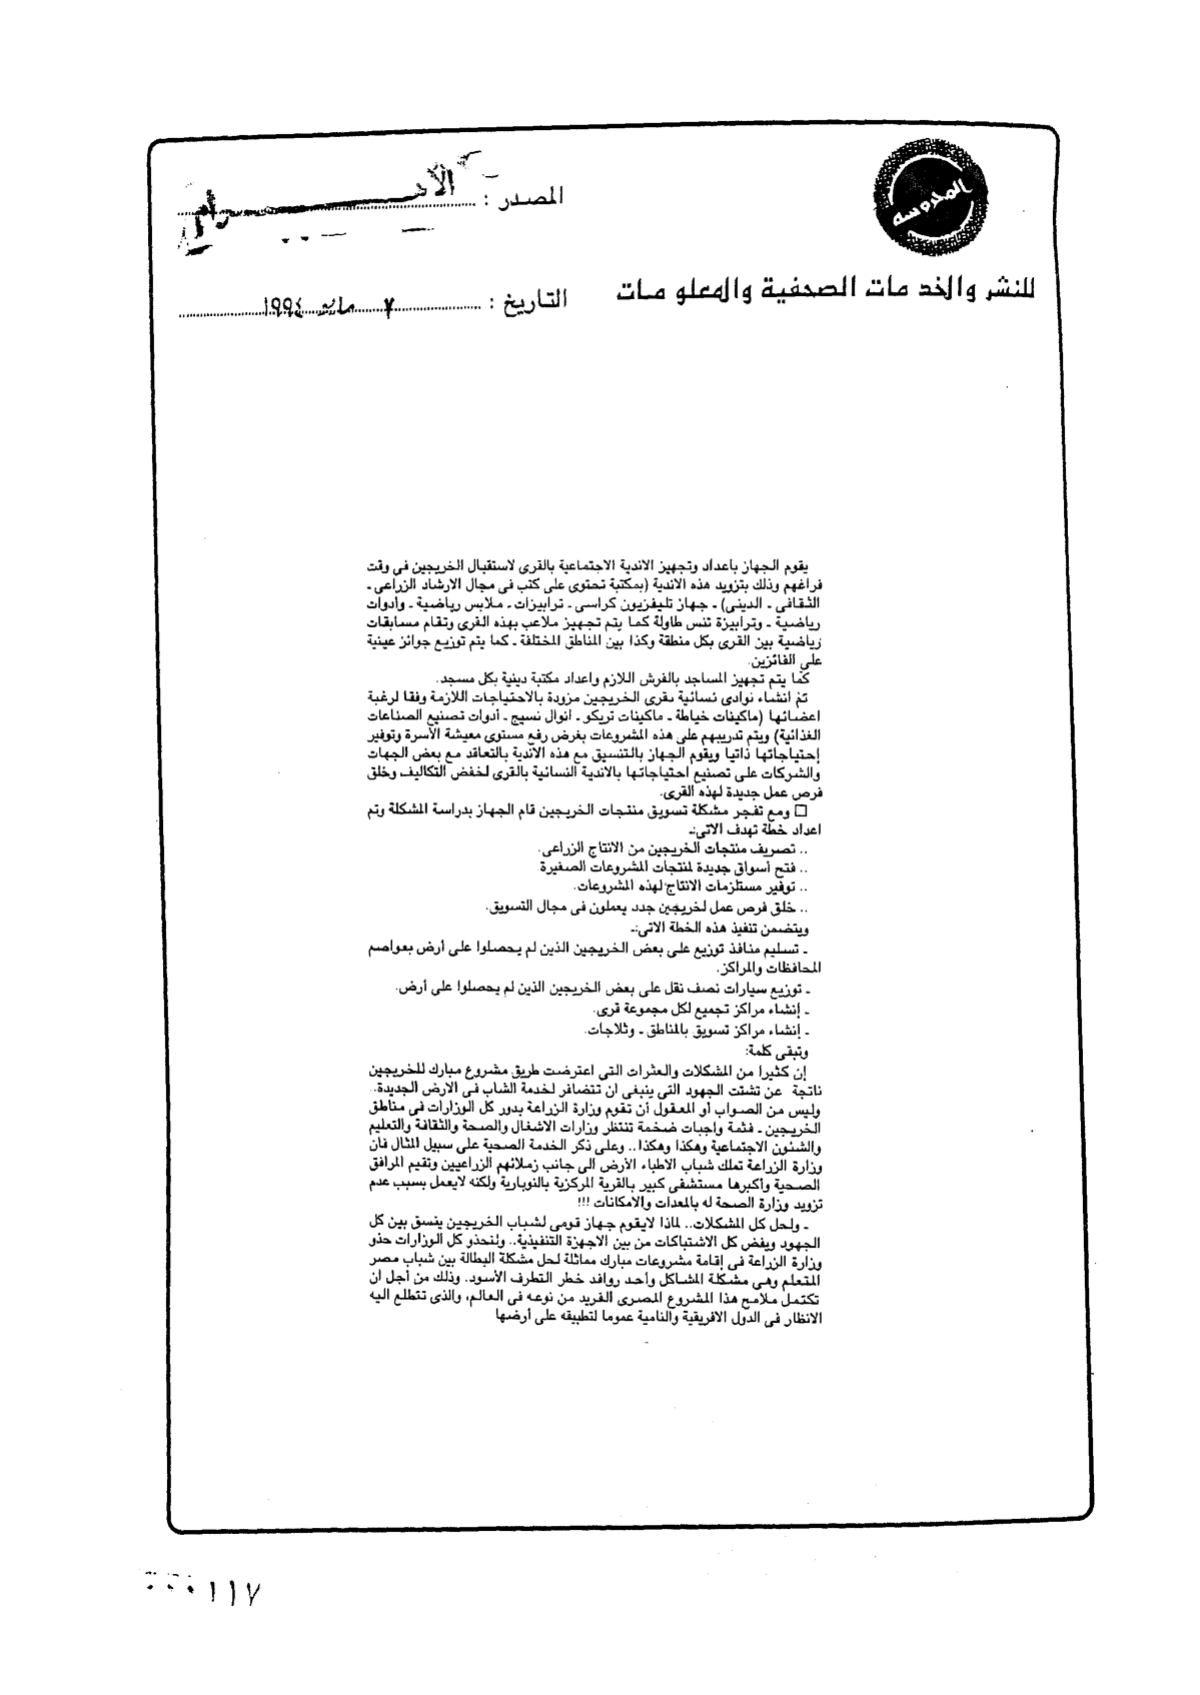 المحروسه
للنشر والخدمات الصحفية والمعلومات
المصدر : الأهرام
التاريخ : ٧ مايو ١٩٩٤
يقوم الجهاز باعداد وتجهيز الاندية الاجتماعية بالقرى لاستقبال الخريجين فى وقت
فراغهم وذلك بتزويد هذه الاندية (بمكتبة تحتوى على كتب فى مجال الارشاد الزراعى ـ
الثقافى ـ الدينى) ـ جهاز تليفزيون كراسى ـ ترابيزات ـ ملابس رياضية ـ وأدوات
رياضية ـ وترابيزة تنس طاولة كما يتم تجهيز ملاعب بهذه القرى وتقام مسابقات
رياضية بين القرى بكل منطقة وكذا بين المناطق المختلفة ـ كما يتم توزيع جوائز عينية
على الفائزين.
كما يتم تجهيز المساجد بالفرش اللازم واعداد مكتبة دينية بكل مسجد.
تم انشاء نوادى نسائية بقرى الخريجين مزودة بالاحتياجات اللازمة وفقا لرغبة
اعضائها (ماكينات خياطة ـ ماكينات تريكو ـ انوال نسيج ـ أدوات تصنيع الصناعات
الغذائية) ويتم تدريبهم على هذه المشروعات بغرض رفع مستوى معيشة الأسرة وتوفير
إحتياجاتها ذاتيا ويقوم الجهاز بالتنسيق مع هذه الاندية بالتعاقد مع بعض الجهات
والشركات على تصنيع احتياجاتها بالاندية النسائية بالقرى لخفض التكاليف وخلق
فرص عمل جديدة لهذه القرى.
□ ومع تفجر مشكلة تسويق منتجات الخريجين قام الجهاز بدراسة المشكلة وتم
اعداد خطة تهدف الاتى:ـ
.. تصريف منتجات الخريجين من الانتاج الزراعى.
.. فتح أسواق جديدة لمنتجات المشروعات الصغيرة
.. توفير مستلزمات الانتاج لهذه المشروعات.
.. خلق فرص عمل لخريجين جدد يعملون فى مجال التسويق.
ويتضمن تنفيذ هذه الخطة الاتى:ـ
ـ تسليم منافذ توزيع على بعض الخريجين الذين لم يحصلوا على أرض بعواصم
المحافظات والمراكز.
ـ توزيع سيارات نصف نقل على بعض الخريجين الذين لم يحصلوا على أرض.
ـ إنشاء مراكز تجميع لكل مجموعة قرى.
ـ إنشاء مراكز تسويق بالمناطق ـ وثلاجات.
وتبقى كلمة:
إن كثيرا من المشكلات والعثرات التى اعترضت طريق مشروع مبارك للخريجين
ناتجة عن تشتت الجهود التى ينبغى ان تتضافر لخدمة الشاب فى الارض الجديدة..
وليس من الصواب أو المعقول أن تقوم وزارة الزراعة بدور كل الوزارات فى مناطق
الخريجين ـ فثمة واجبات ضخمة تنتظر وزارات الاشغال والصحة والثقافة والتعليم
والشئون الاجتماعية وهكذا وهكذا.. وعلى ذكر الخدمة الصحية على سبيل المثال فان
وزارة الزراعة تملك شباب الاطباء الأرض الى جانب زملائهم الزراعيين وتقيم المرافق
الصحية واكبرها مستشفى كبير بالقرية المركزية بالنوبارية ولكنه لايعمل بسبب عدم
تزويد وزارة الصحة له بالمعدات والامكانات !!!
ـ ولحل كل المشكلات.. لماذا لايقوم جهاز قومى لشباب الخريجين ينسق بين كل
الجهود ويفض كل الاشتباكات من بين الاجهزة التنفيذية.. ولتحذو كل الوزارات حذو
وزارة الزراعة فى إقامة مشروعات مبارك مماثلة لحل مشكلة البطالة بين شباب مصر
المتعلم وهى مشكلة المشاكل وأحد روافد خطر التطرف الأسود. وذلك من أجل ان
تكتمل ملامح هذا المشروع المصرى الفريد من نوعه فى العالم، والذى تتطلع اليه
الانظار فى الدول الافريقية والنامية عموما لتطبيقه على أرضها
١١٧